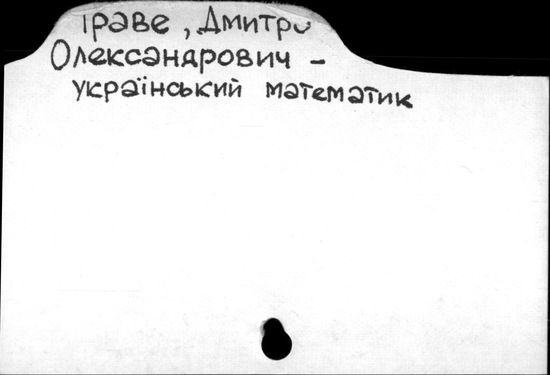 Граве, Дмитро
Олександрович -
український математик